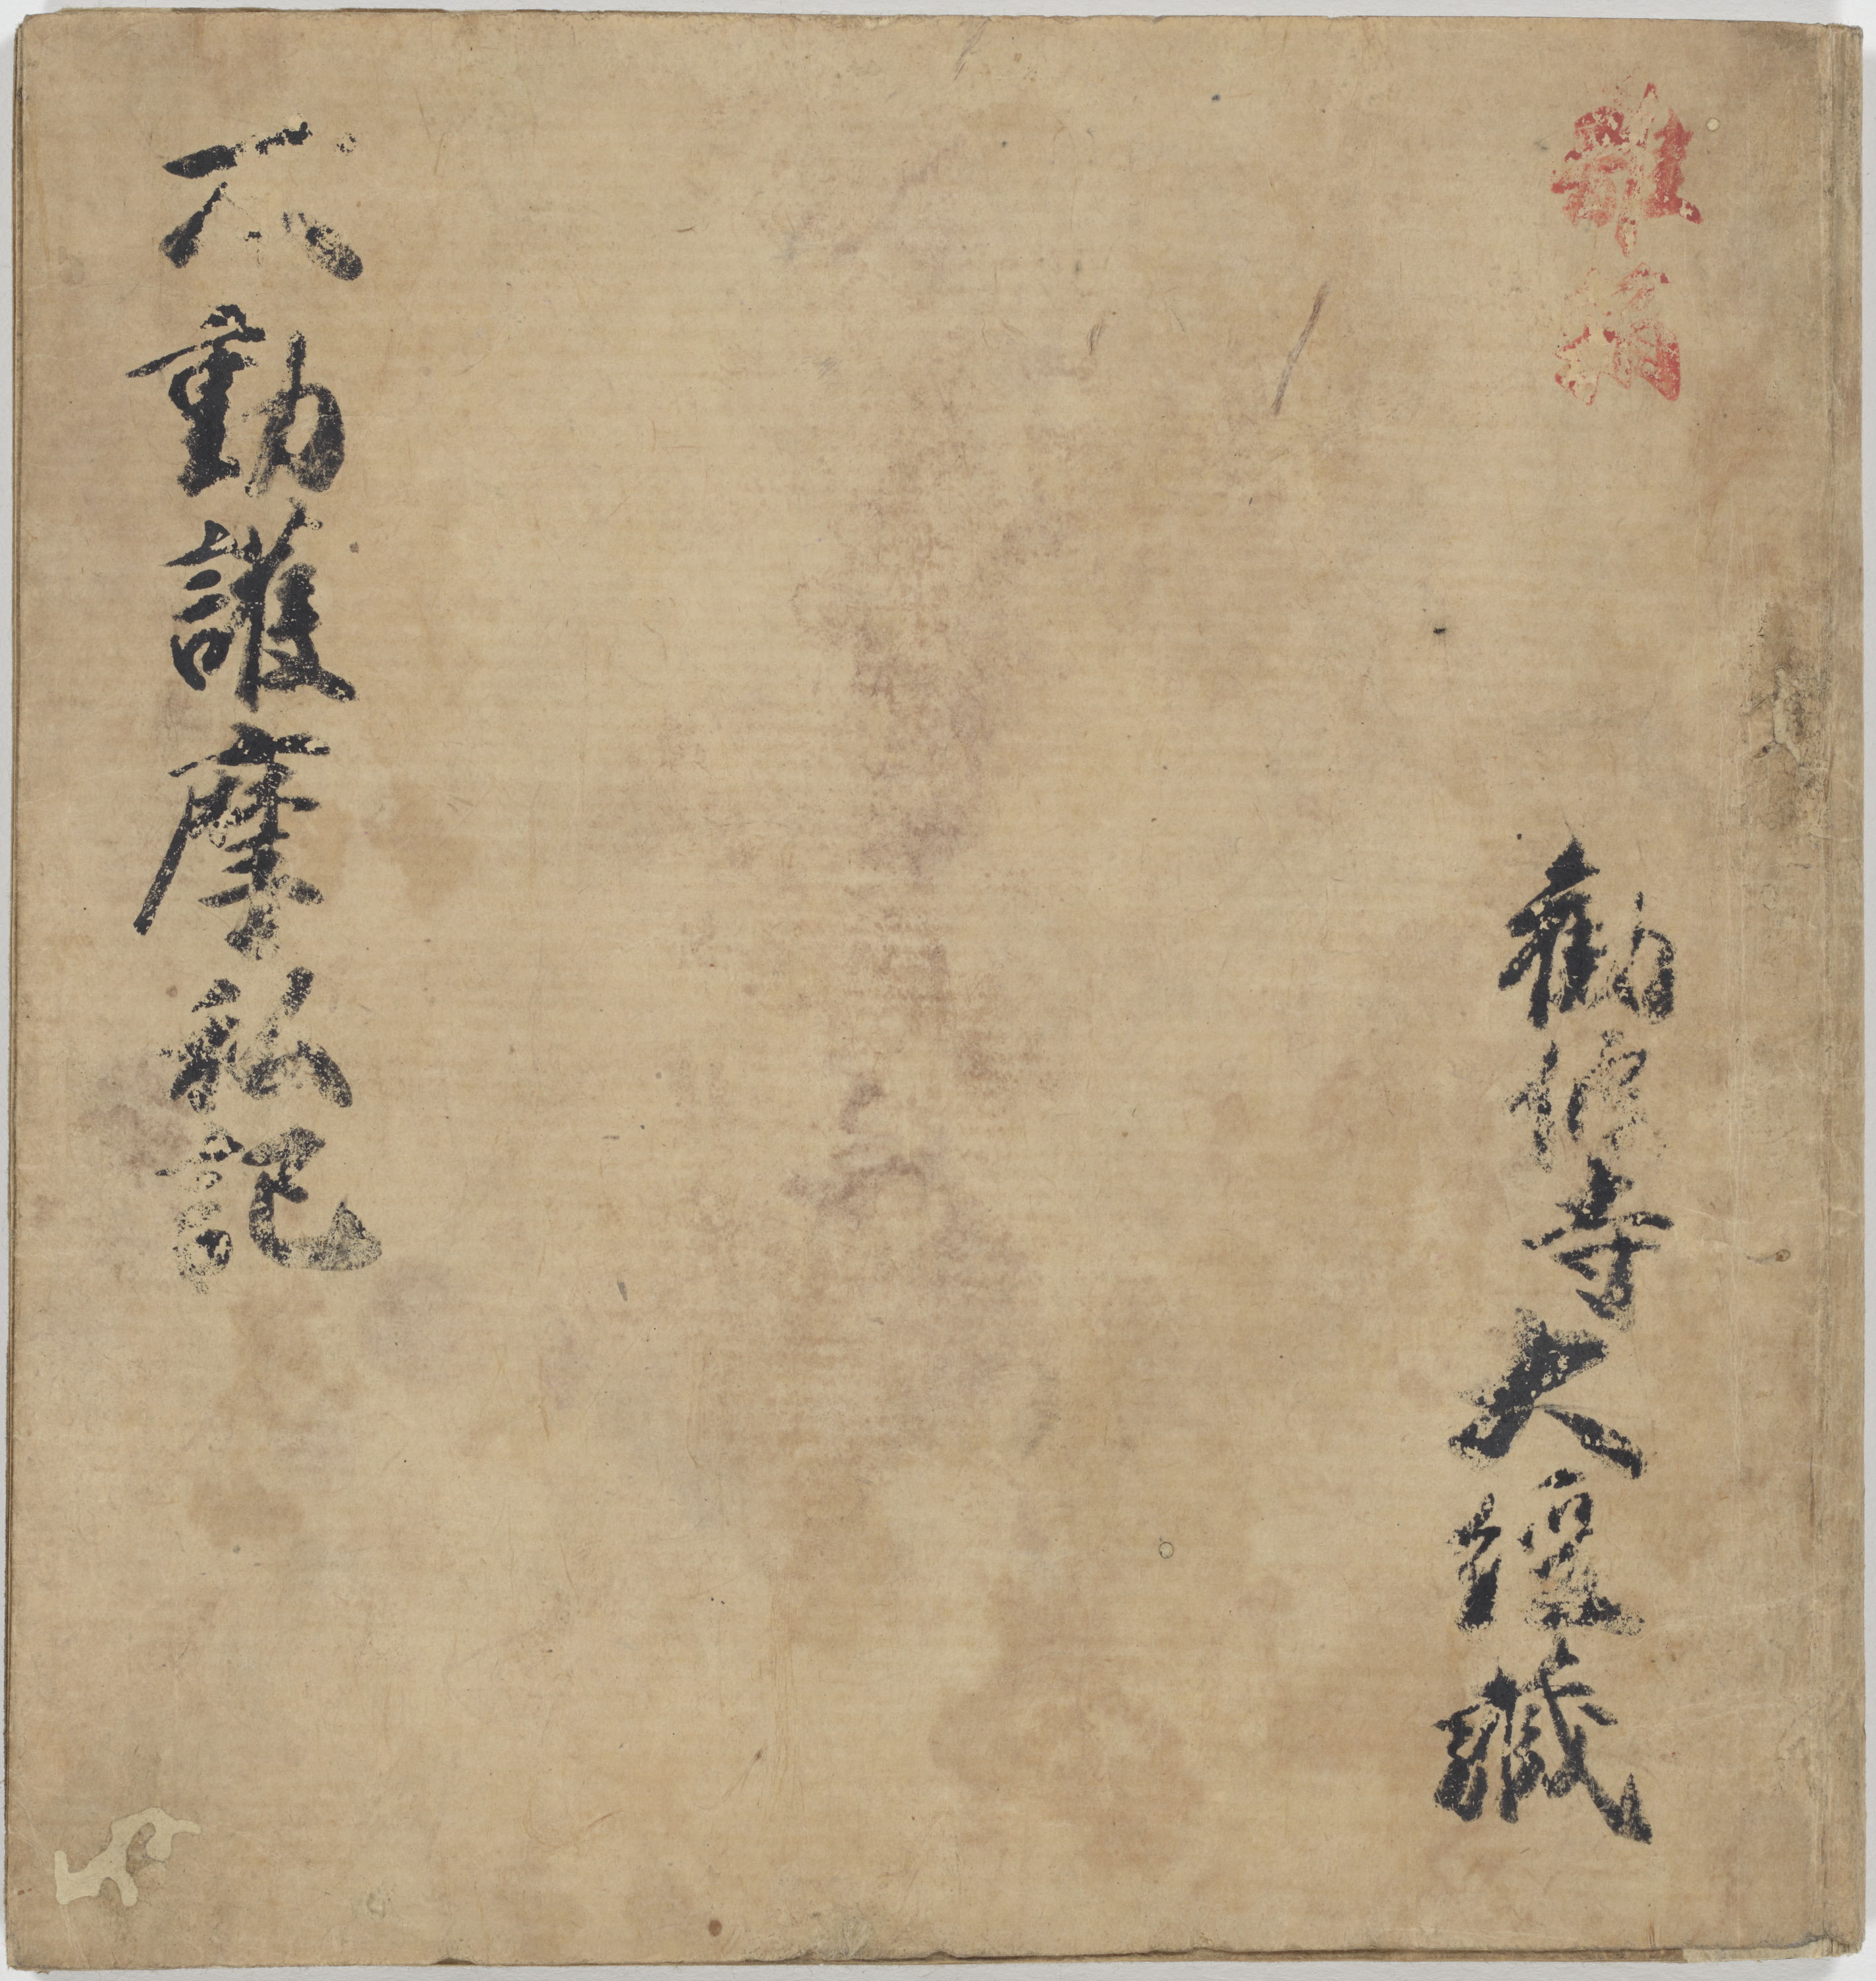 雜
勧修寺大經藏
不動護摩私記